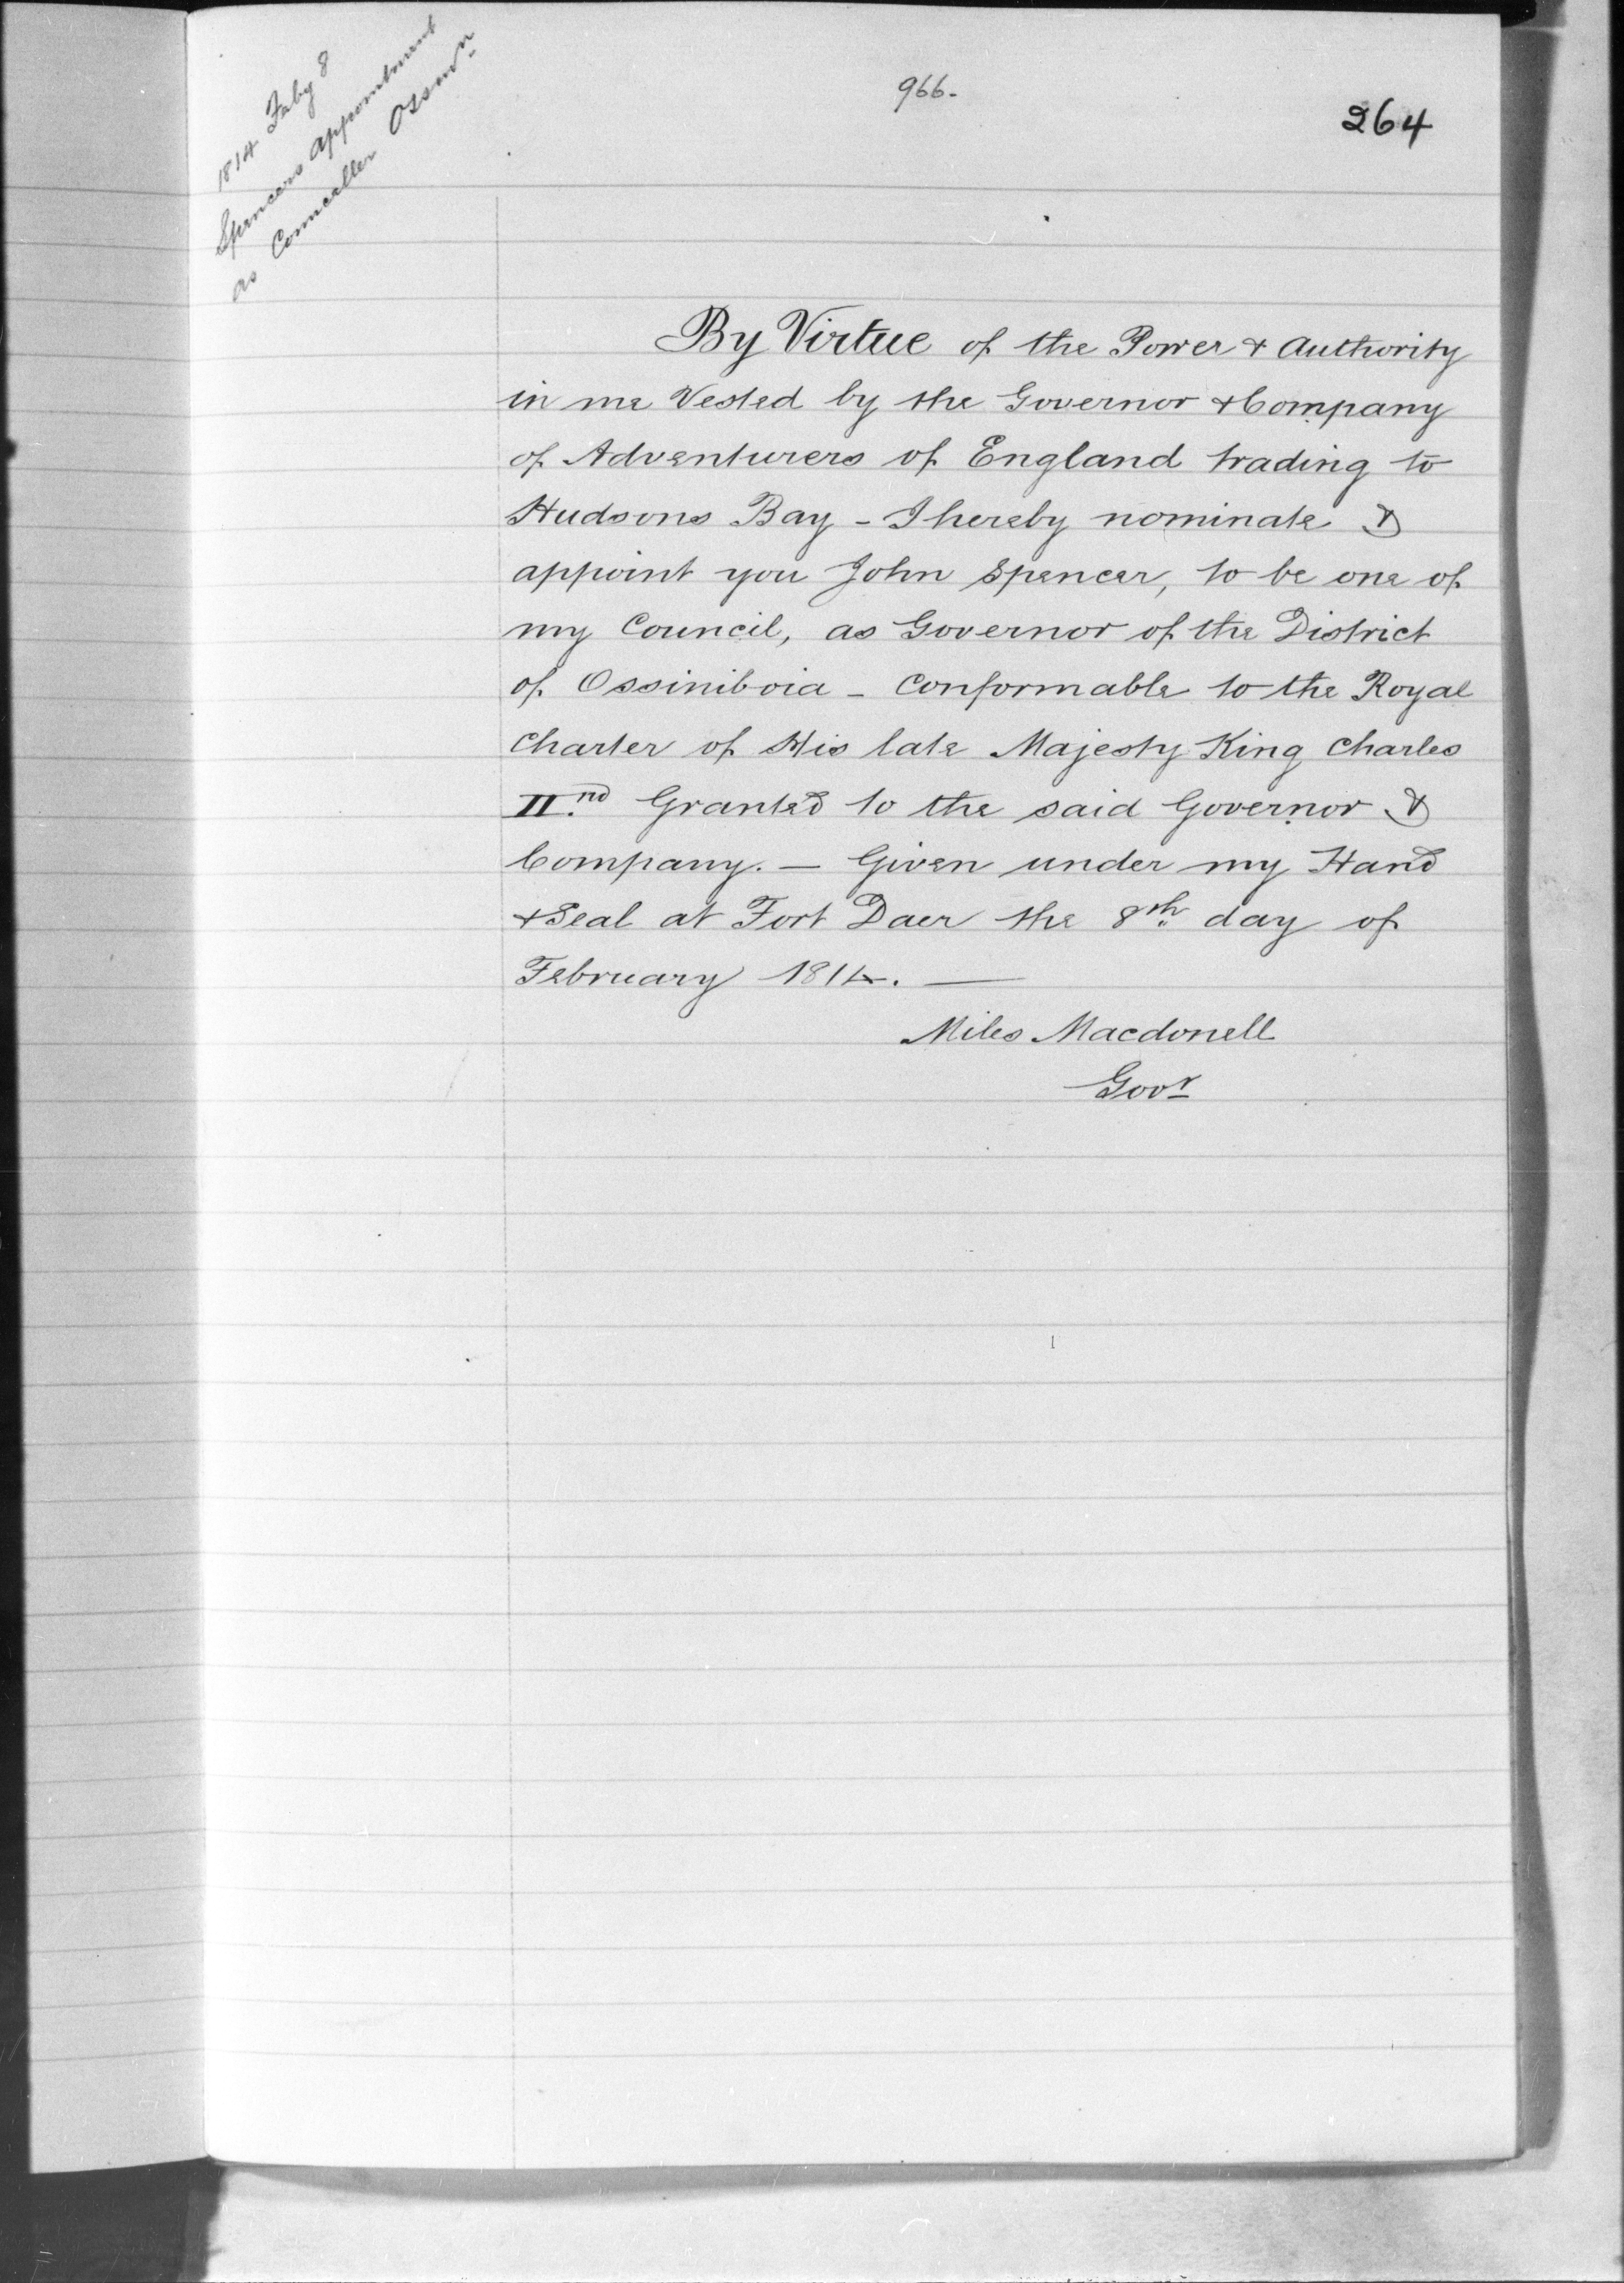 966.
264
1814 Feby 8
Spencers appointment
as Councellor Ossinn
By Virtue of the Power & Authority
in me Vested by the Governor & Company
of Adventurers of England trading to
Hudsons Bay - I hereby nominate &
appoint you John Spencer, to be one of
my Council, as Governor of the District
of Ossiniboia - Conformable to the Royal
Charter of His late Majesty King Charles
II.nd Granted to the said Governor &
Company. — Given under my Hand
& Seal at Fort Daer the 8th day of
February 1814. —
Miles Macdonell
Govr